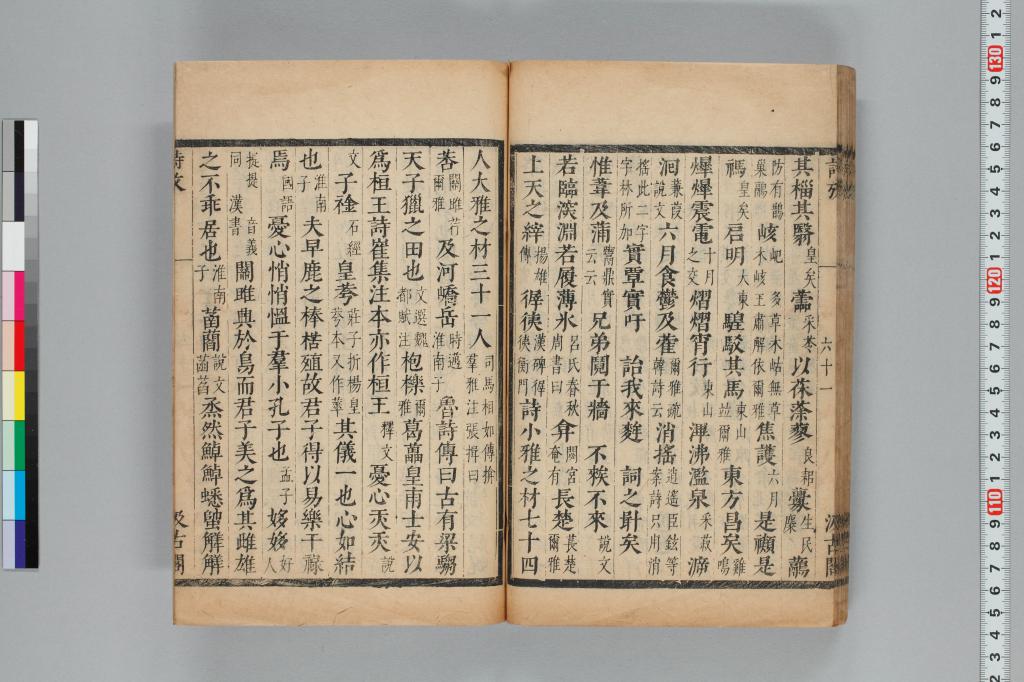 其椔其翳皇矣 薷采苓 以茠荼蓼良耜 䆃生民穈 䕩
防有鵲巢鷊 岐屺 㚊草木岵無草木岐王肅解依爾雅 焦護六月 是顁是
禡皇矣 启明大東 騜駁其馬東山竝爾雅 東方昌矣雞鳴
㷸㷸震電十月之交 熠熠宵行東山 滭沸濫泉采菽 㴑
洄蒹葭說文 六月食鬱及藿爾雅疏韓詩云 消搖逍遙臣鉉等案詩只用消
搖此二字字林所加 實覃實吁 詒我來麰 詞之𠳨矣
惟葦及蒲鬻鼎實云云 兄弟鬩于牆 不𥎦不來說文
若臨深淵若履薄氷呂氏春秋周書曰 弇閟宮奄有 長楚萇楚
上天之縡揚雄傳 徲徥漢碑得徥衡門 詩小雅之材七十四
六十一
汲古閣
人大雅之材三十一人司馬相如傳揜羣雅注張揖曰
𦯧關雎若爾雅 及河嶠岳時邁淮南子 魯詩傳曰古有梁騶
天子獵之田也文選魏都賦注 枹櫟爾雅 葛藟皇甫士安以
爲桓王詩崔集注本亦作桓王釋文 憂心𤆍𤆍說
文 子衿石經 皇荂莊子折楊皇荂本又作華 其儀一也心如結
也淮南子 夫早鹿之榛楛殖故君子得以易樂干祿
焉國語 憂心悄悄愠于羣小孔子也孟子 姼姼好人
提提同漢書音義 關雎興於鳥而君子美之爲其雌雄
之不乖居也淮南子 菡藺說文菡萏 烝然鯙鯙蟋蟀
汲古閣